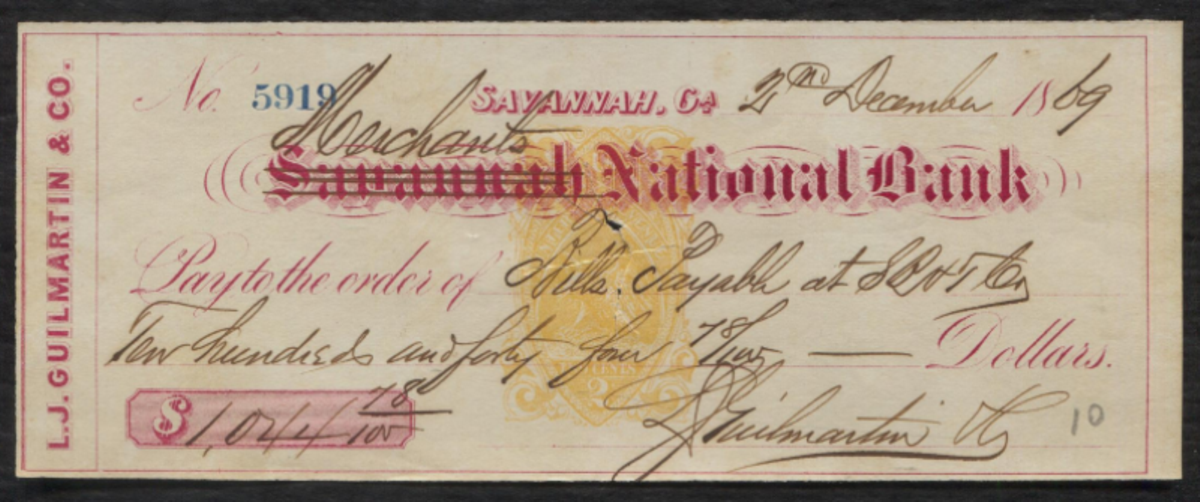 L.J. GUILMARTIN & CO.
No. 5919 SAVANNAH, Ga 2nd December 1869
Merchants
Savannah National Bank
Pay to the order of Bills Payable at SB & T Co
Ten hundreds and forty four 78/100 — Dollars.
$ 1,044 78/100
CENTS
2
LJ Guilmartin & Co
10